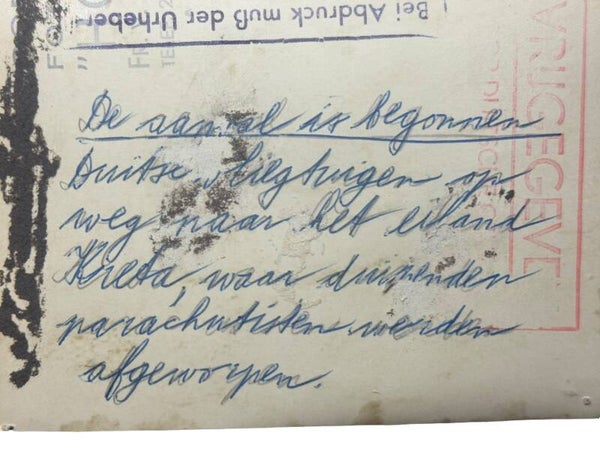 Bei Abdruck muß der Urheber-
VRIJGEGEVE
De aanval is begonnen
Duitse vliegtuigen op
weg naar het eiland
Kreta, waar duizenden
parachutisten werden
afgeworpen.